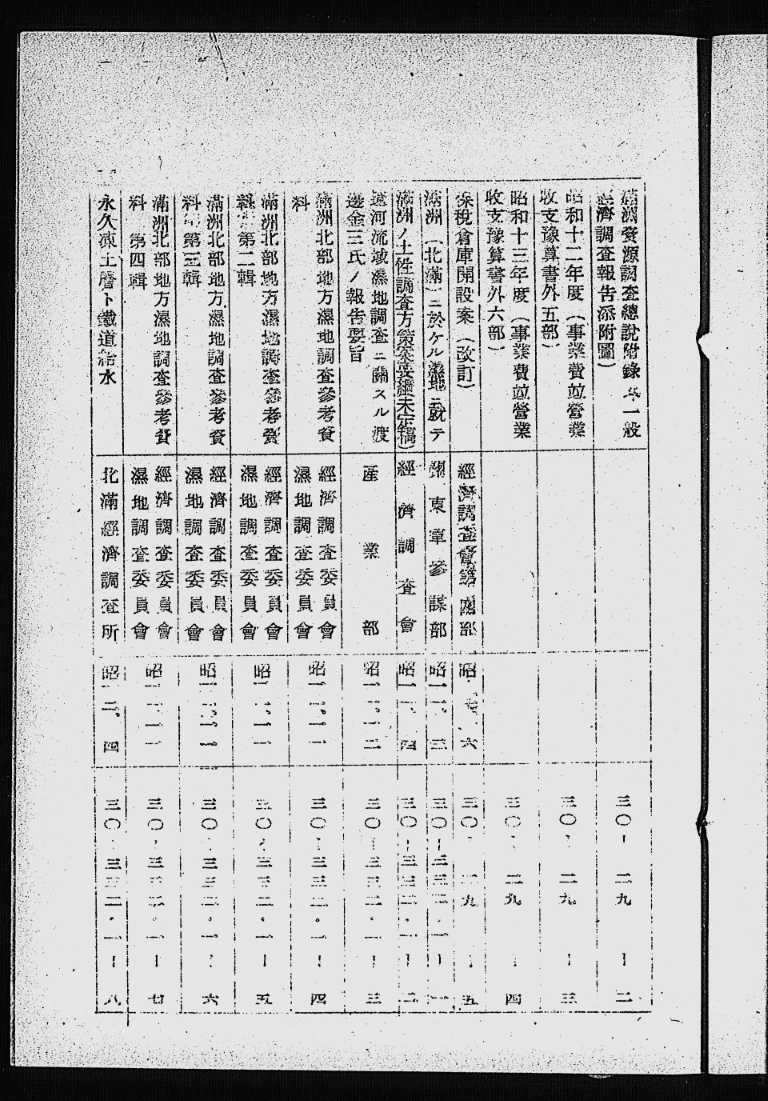 滿洲資源調査總説附錄 一般
經濟調査報告添附圖)
三〇— 二九 —二
昭和十二年度(事業費竝營業
收支豫算書外五部)
三〇— 二九 —三
昭和十三年度(事業費竝營業
收支豫算書外六部)
三〇— 二九 —四
保稅倉庫開設案(改訂)
經濟調査會第四部
昭 七、六
三〇— 二九 —五
滿洲(北滿)ニ於ケル濕地ニ就テ
關東軍參謀部
昭一一、三
三〇—三三二、一—一
滿洲ノ土性調査方策案要綱未定稿)
經濟調査會
昭一一、四
三〇—三三二、一—二
遼河流域濕地調査ニ關スル渡
邊金三氏ノ報告要旨
產業部
昭一二、一二
三〇—三三二、一—三
滿洲北部地方濕地調査參考資
料
經濟調査委員會
濕地調査委員會
昭一二、一一
三〇—三三二、一—四
滿洲北部地方濕地調査參考資
料 第二輯
經濟調査委員會
濕地調査委員會
昭一二、一一
三〇—三三二、一—五
滿洲北部地方濕地調査參考資
料 第三輯
經濟調査委員會
濕地調査委員會
昭一二、一一
三〇—三三二、一—六
滿洲北部地方濕地調査參考資
料 第四輯
經濟調査委員會
濕地調査委員會
昭一二、一一
三〇—三三二、一—七
永久凍土層ト鐵道給水
北滿經濟調査所
昭一二、四
三〇—三三二、一—八